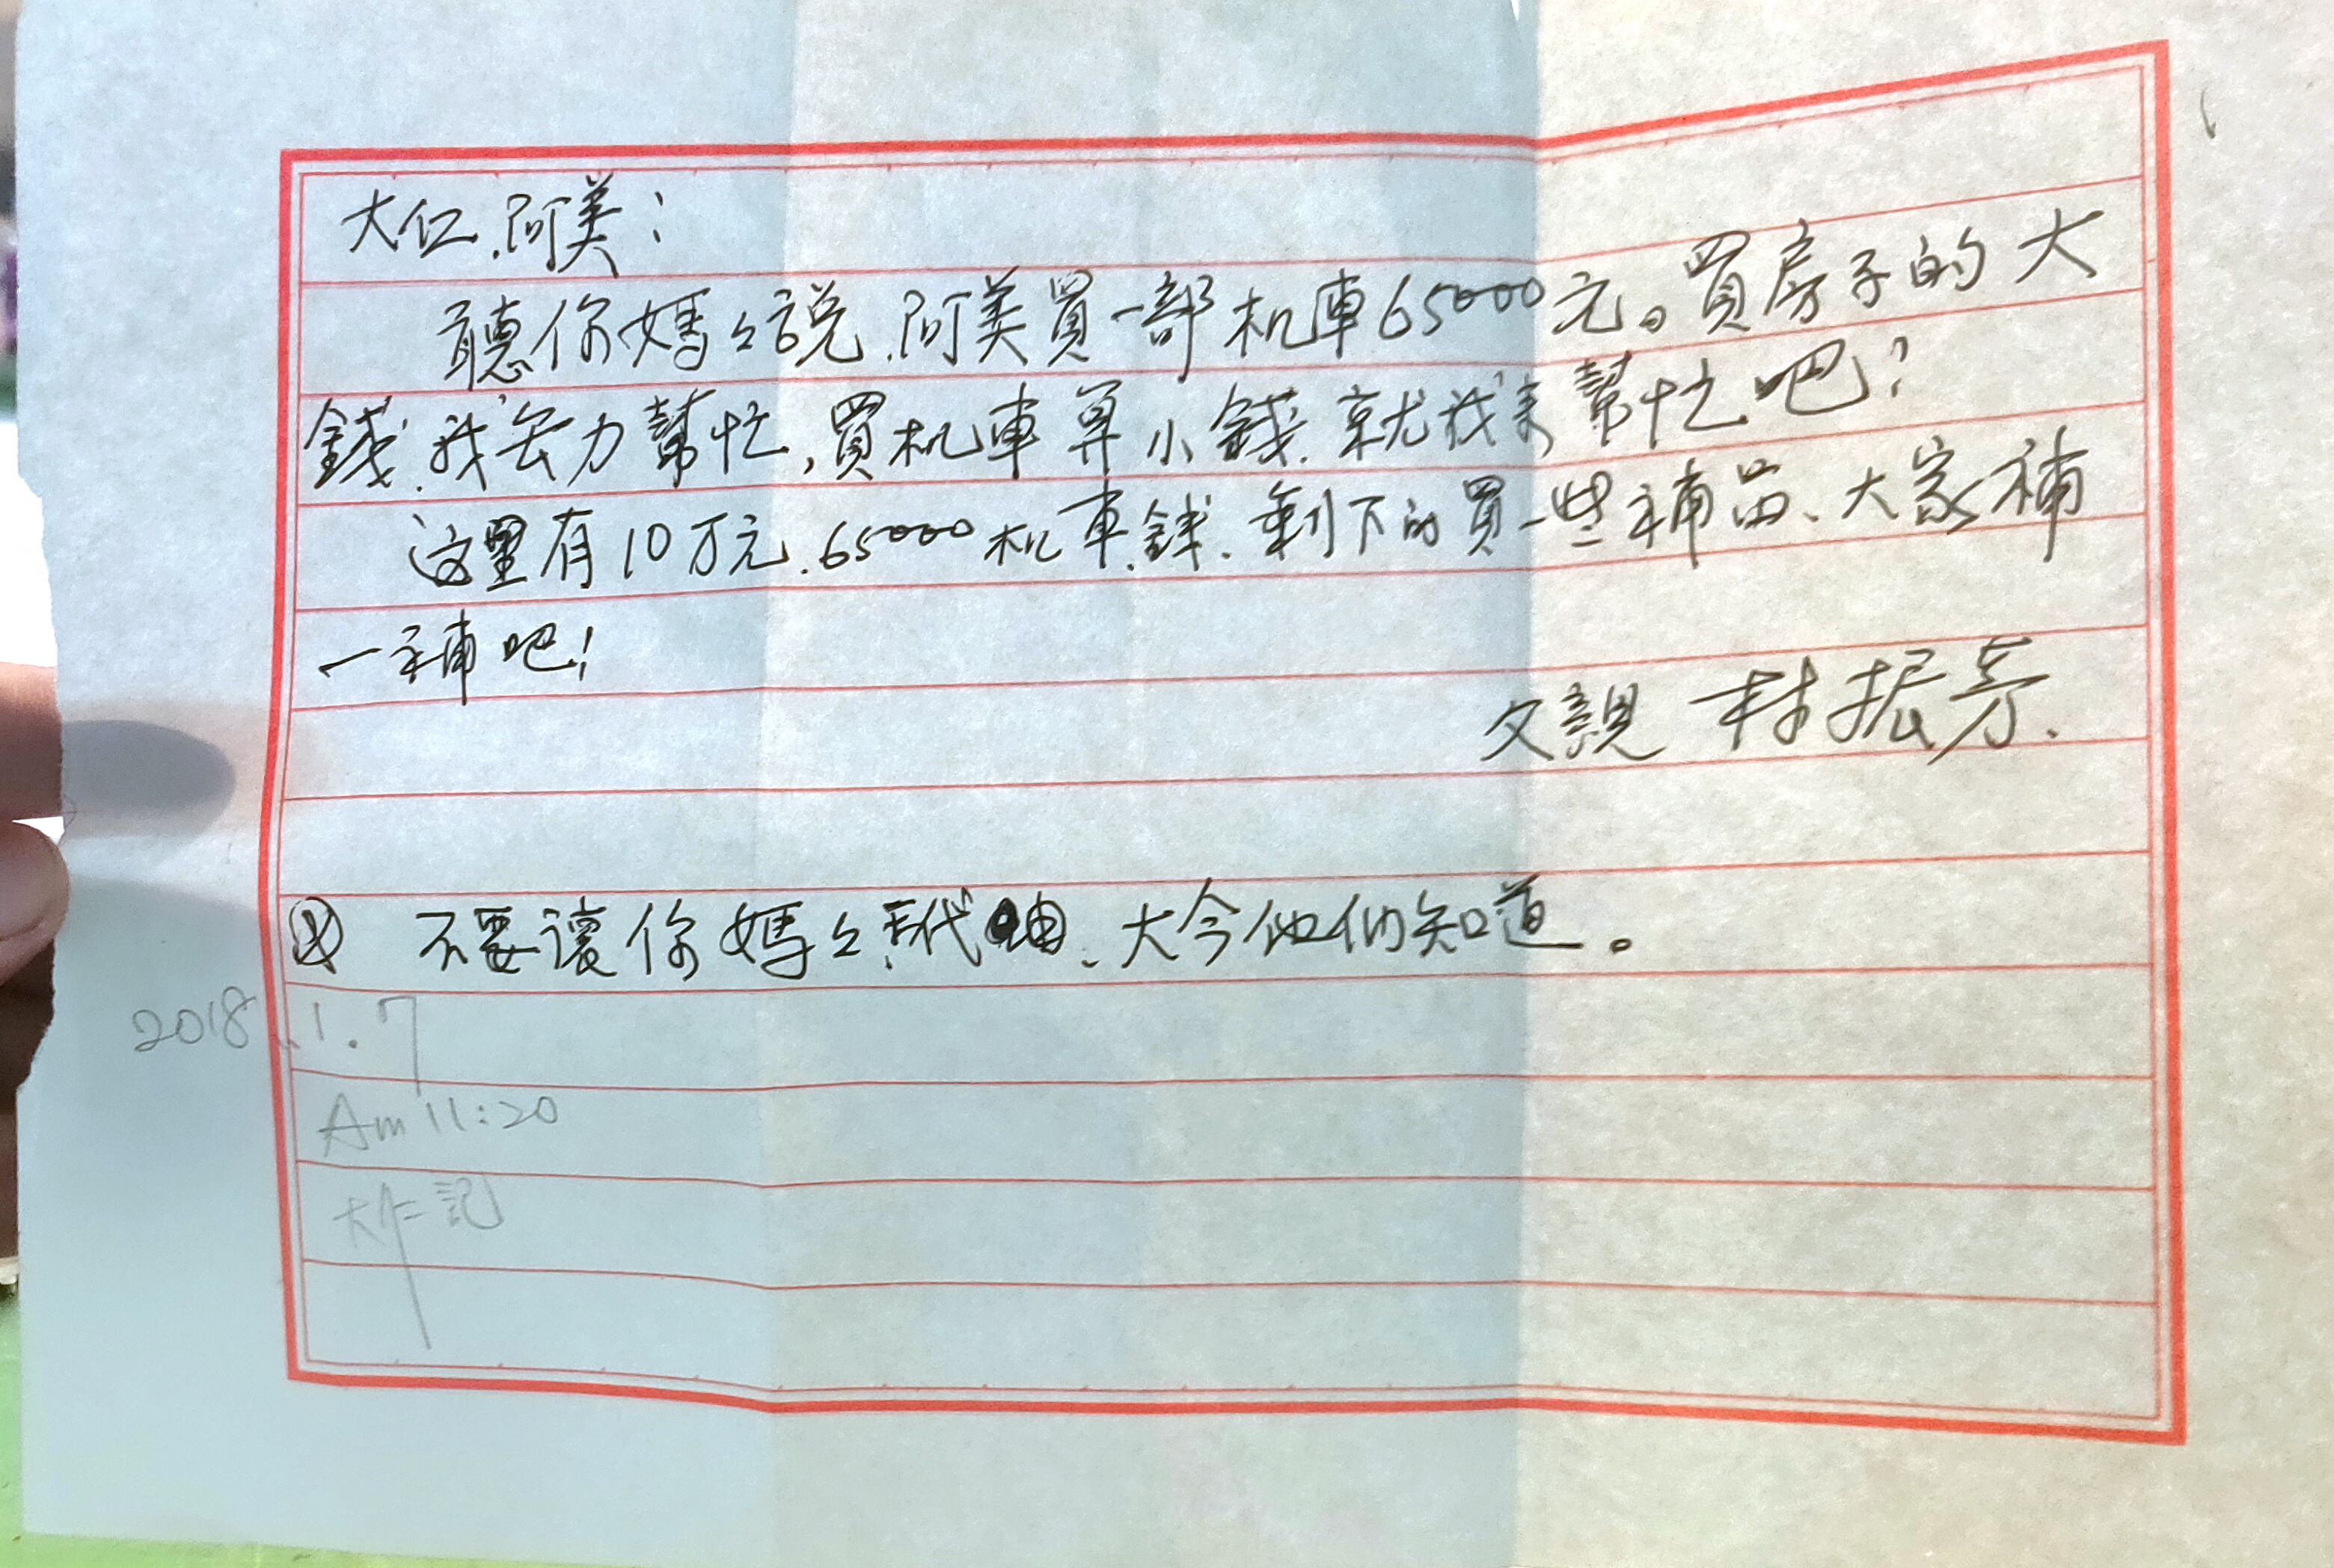 大仁.阿美：
聽你媽々說.阿美買一部机車65000元。買房子的大
錢.我无力幫忙,買机車算小錢.就我来幫忙吧？
这里有10万元.65000机車錢.剩下的買一些補品、大家補
一補吧！
父親 林振芳.
不要讓你媽々.玳、大今他们知道。
2018.1.7
Am 11:20
大仁記